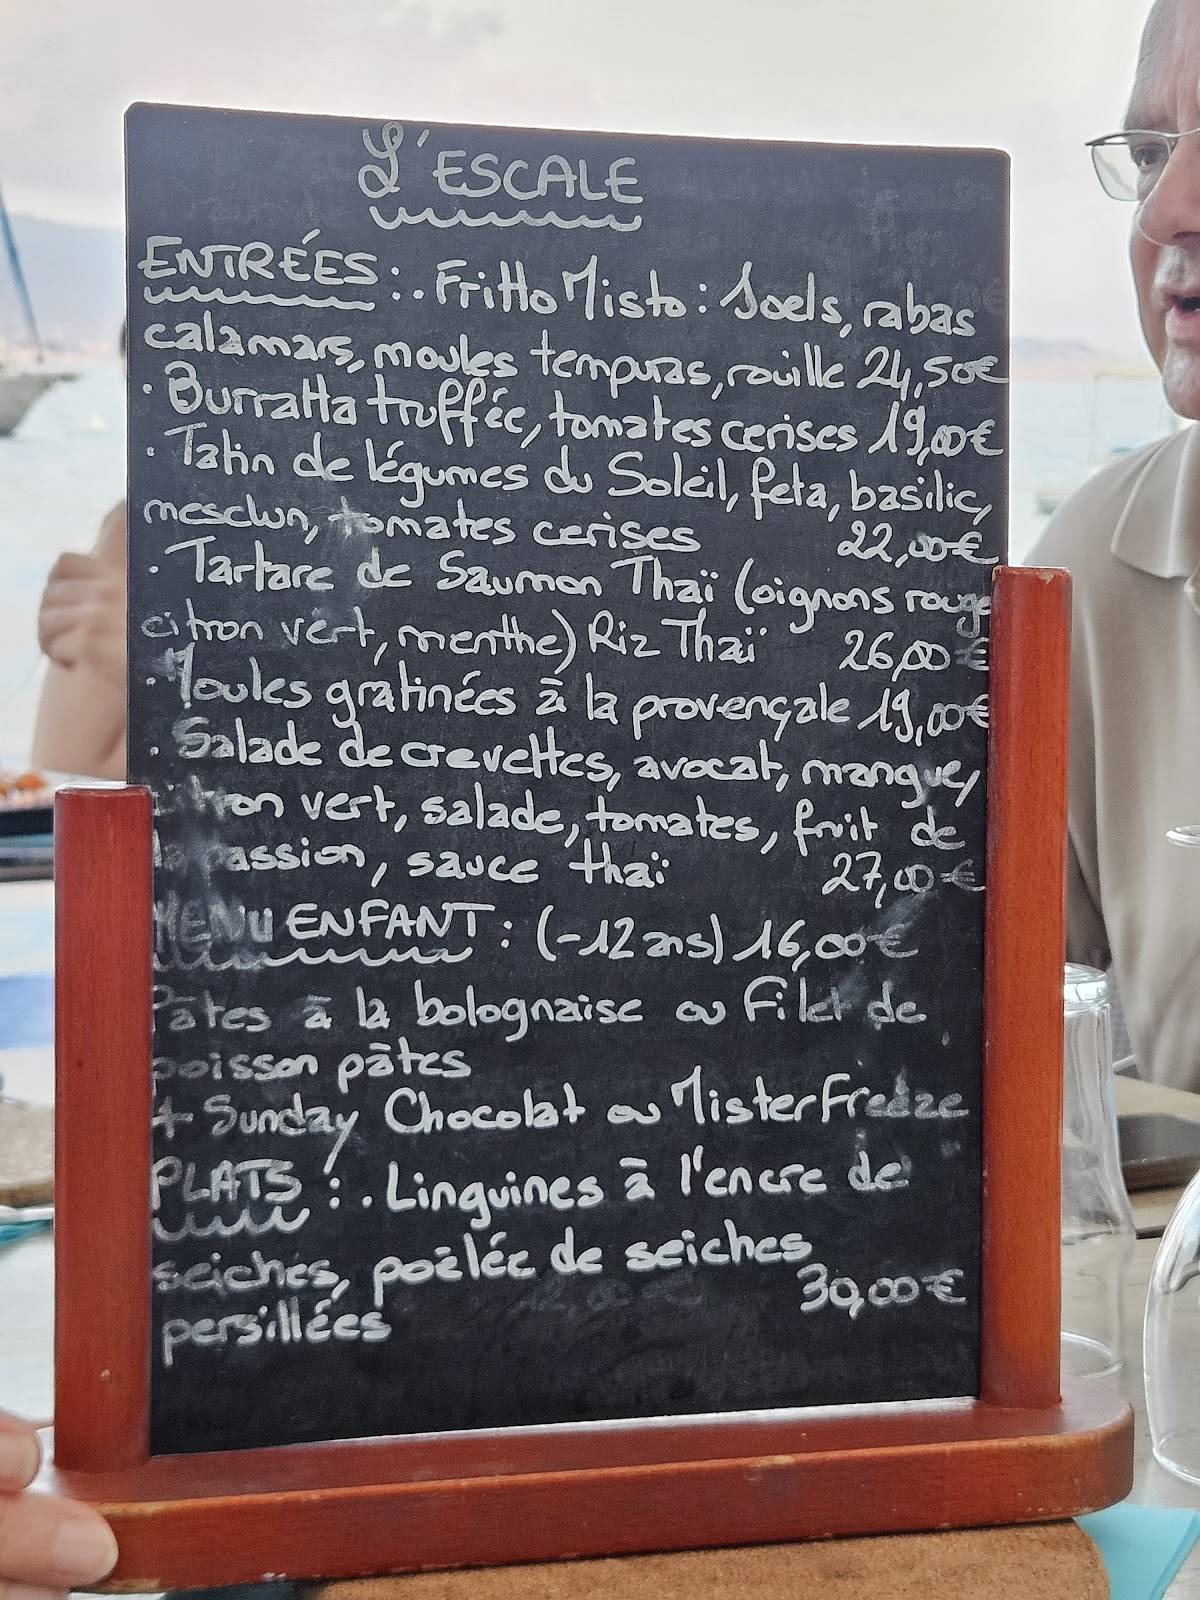 L'ESCALE
ENTRÉES : . Fritto Misto : Joels, rabas
calamars, moules tempuras, rouille 24,50€
. Burratta truffée, tomates cerises 19,00€
. Tatin de légumes du Soleil, feta, basilic,
mesclun, tomates cerises 22,00€
. Tartare de Saumon Thaï (oignons rouge
citron vert, menthe) Riz Thaï 26,00€
. Moules gratinées à la provençale 19,00€
. Salade de crevettes, avocat, mangue,
citron vert, salade, tomates, fruit de
la passion, sauce thaï 27,00€
MENU ENFANT : (-12 ans) 16,00€
Pâtes à la bolognaise ou Filet de
poisson pâtes
+ Sunday Chocolat ou Mister Freeze
PLATS : . Linguines à l'encre de
seiches, poêlée de seiches
persillées 30,00€